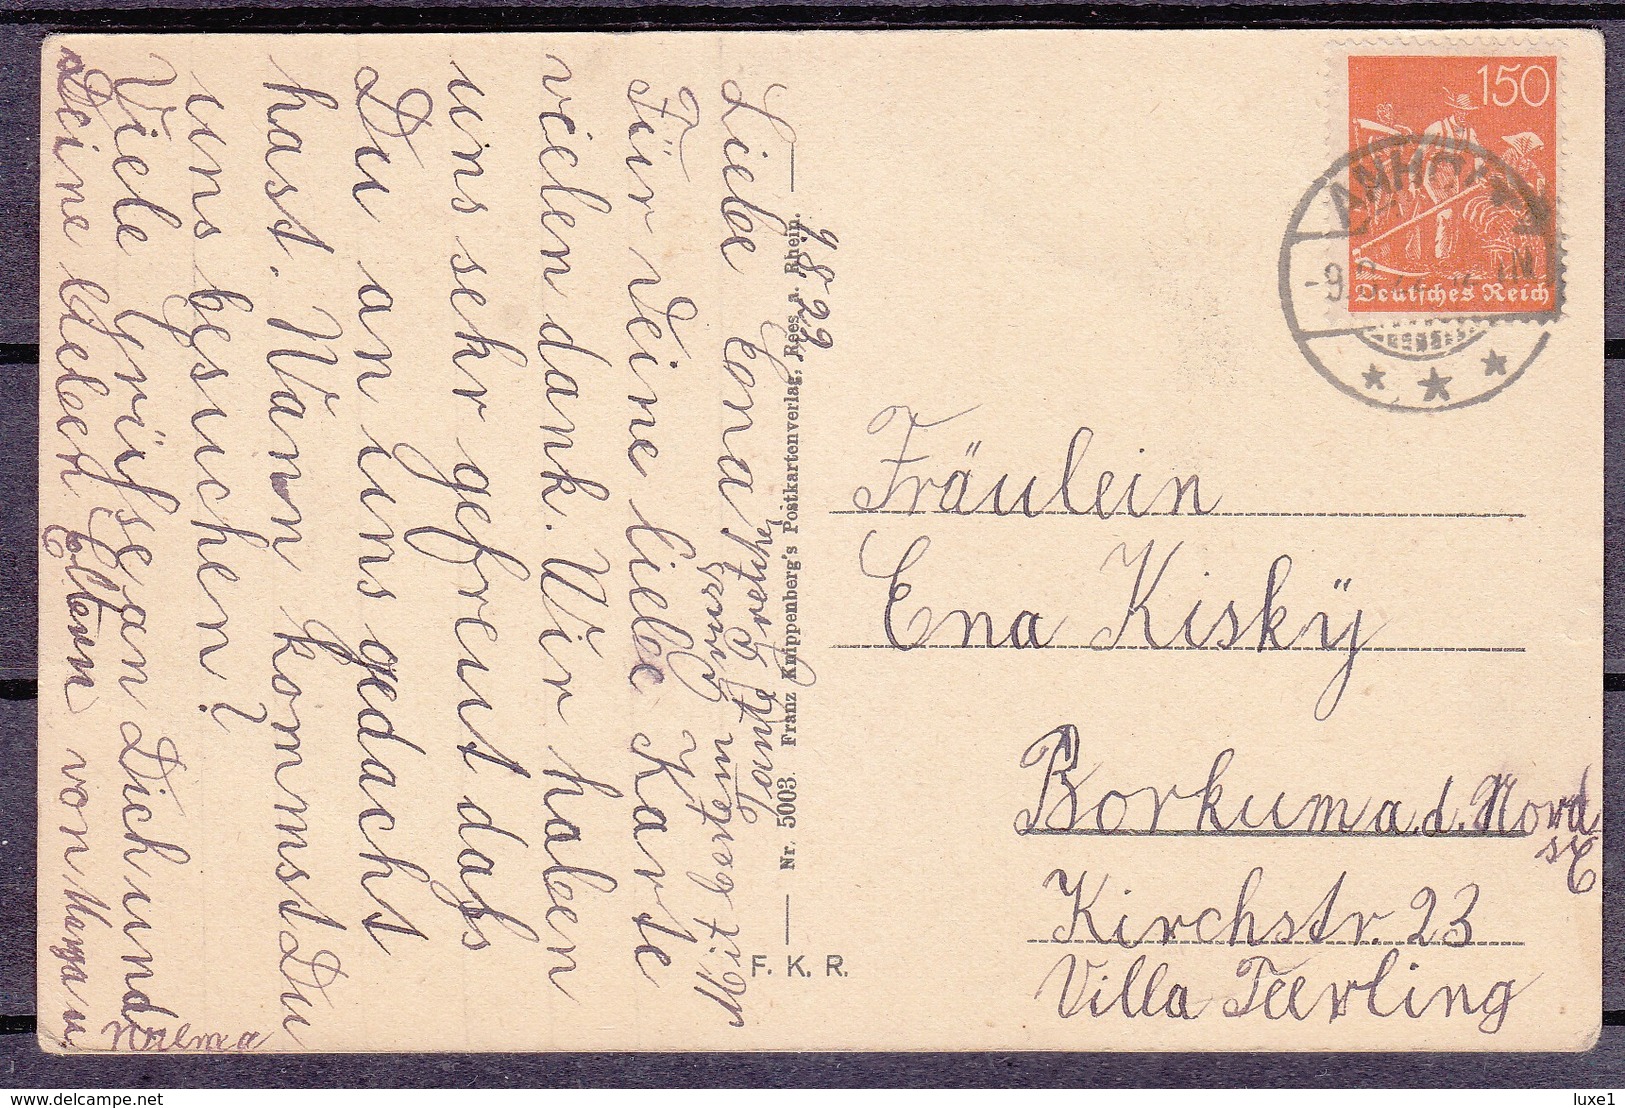 9.8.22
Liebe Ena!
Für Deine liebe Karte
vielen dank. Wir haben
uns sehr gefreut dahs
Du an uns gedacht
hast. Wann kommst Du
uns besuchen?
Viele Grühse an Dich und
Deine lieben Eltern von
Wilma
Nr. 5003. Franz Knippenberg's Postkartenverlag, Rees a. Rhein.
F. K. R.
150
Deutsches Reich
ANHOLT
Fräulein
Ena Kisky
Borkum a. d. Nord
sE
Kirchstr. 23
Villa Teerling
delcampe.net
luxe1